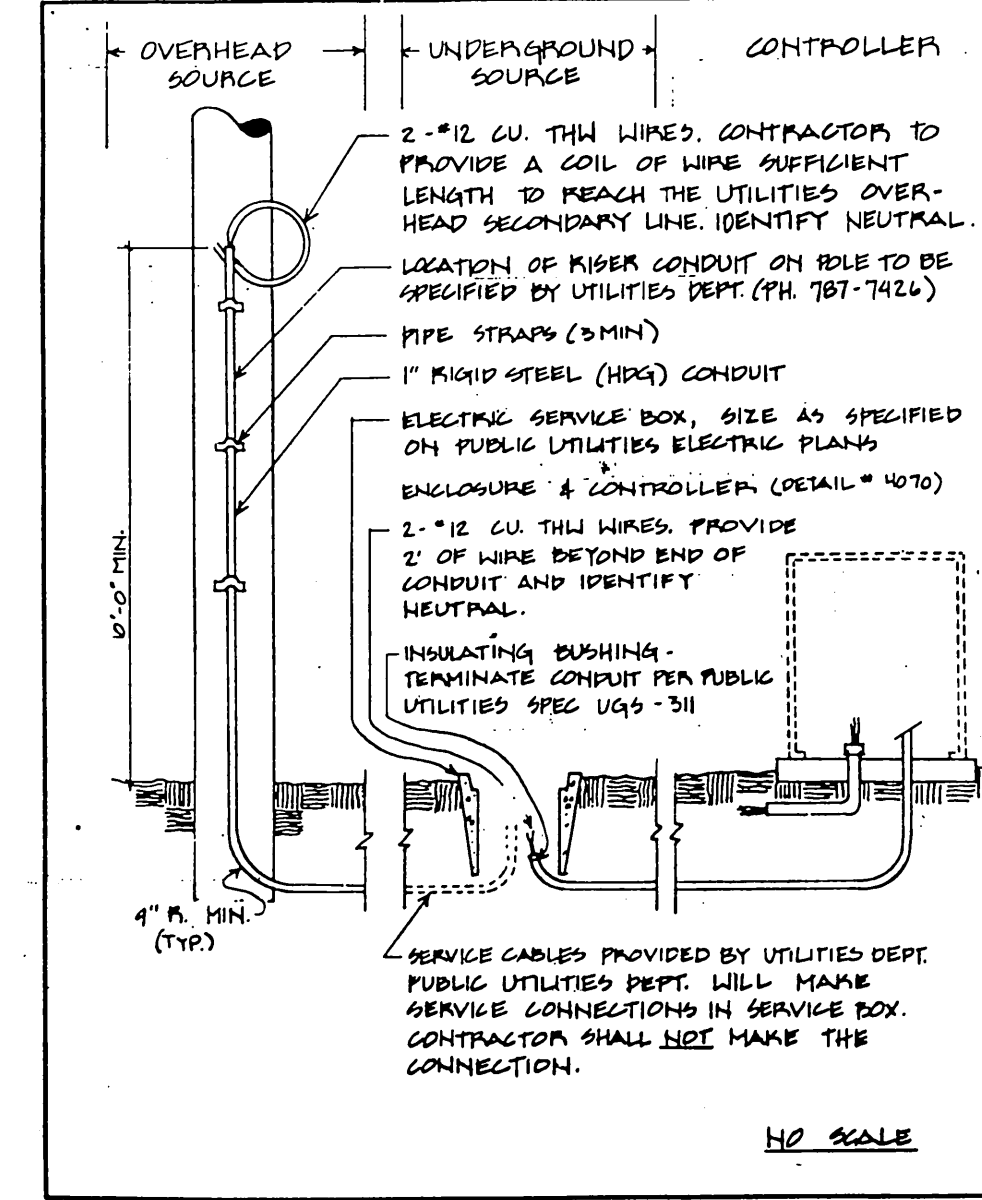 OVERHEAD SOURCE
UNDERGROUND SOURCE
CONTROLLER
2-#12 CU. THW WIRES. CONTRACTOR TO
PROVIDE A COIL OF WIRE SUFFICIENT
LENGTH TO REACH THE UTILITIES OVER-
HEAD SECONDARY LINE. IDENTIFY NEUTRAL.
LOCATION OF RISER CONDUIT ON POLE TO BE
SPECIFIED BY UTILITIES DEPT. (PH. 787-7426)
PIPE STRAPS (3 MIN)
1" RIGID STEEL (HDG) CONDUIT
ELECTRIC SERVICE BOX, SIZE AS SPECIFIED
ON PUBLIC UTILITIES ELECTRIC PLANS
ENCLOSURE & CONTROLLER (DETAIL # 4070)
2-#12 CU. THW WIRES. PROVIDE
2' OF WIRE BEYOND END OF
CONDUIT AND IDENTIFY
NEUTRAL.
10'-0" MIN.
INSULATING BUSHING -
TERMINATE CONDUIT PER PUBLIC
UTILITIES SPEC UGS-311
9" R. MIN.
(TYP.)
SERVICE CABLES PROVIDED BY UTILITIES DEPT.
PUBLIC UTILITIES DEPT. WILL MAKE
SERVICE CONNECTIONS IN SERVICE BOX.
CONTRACTOR SHALL NOT MAKE THE
CONNECTION.
NO SCALE